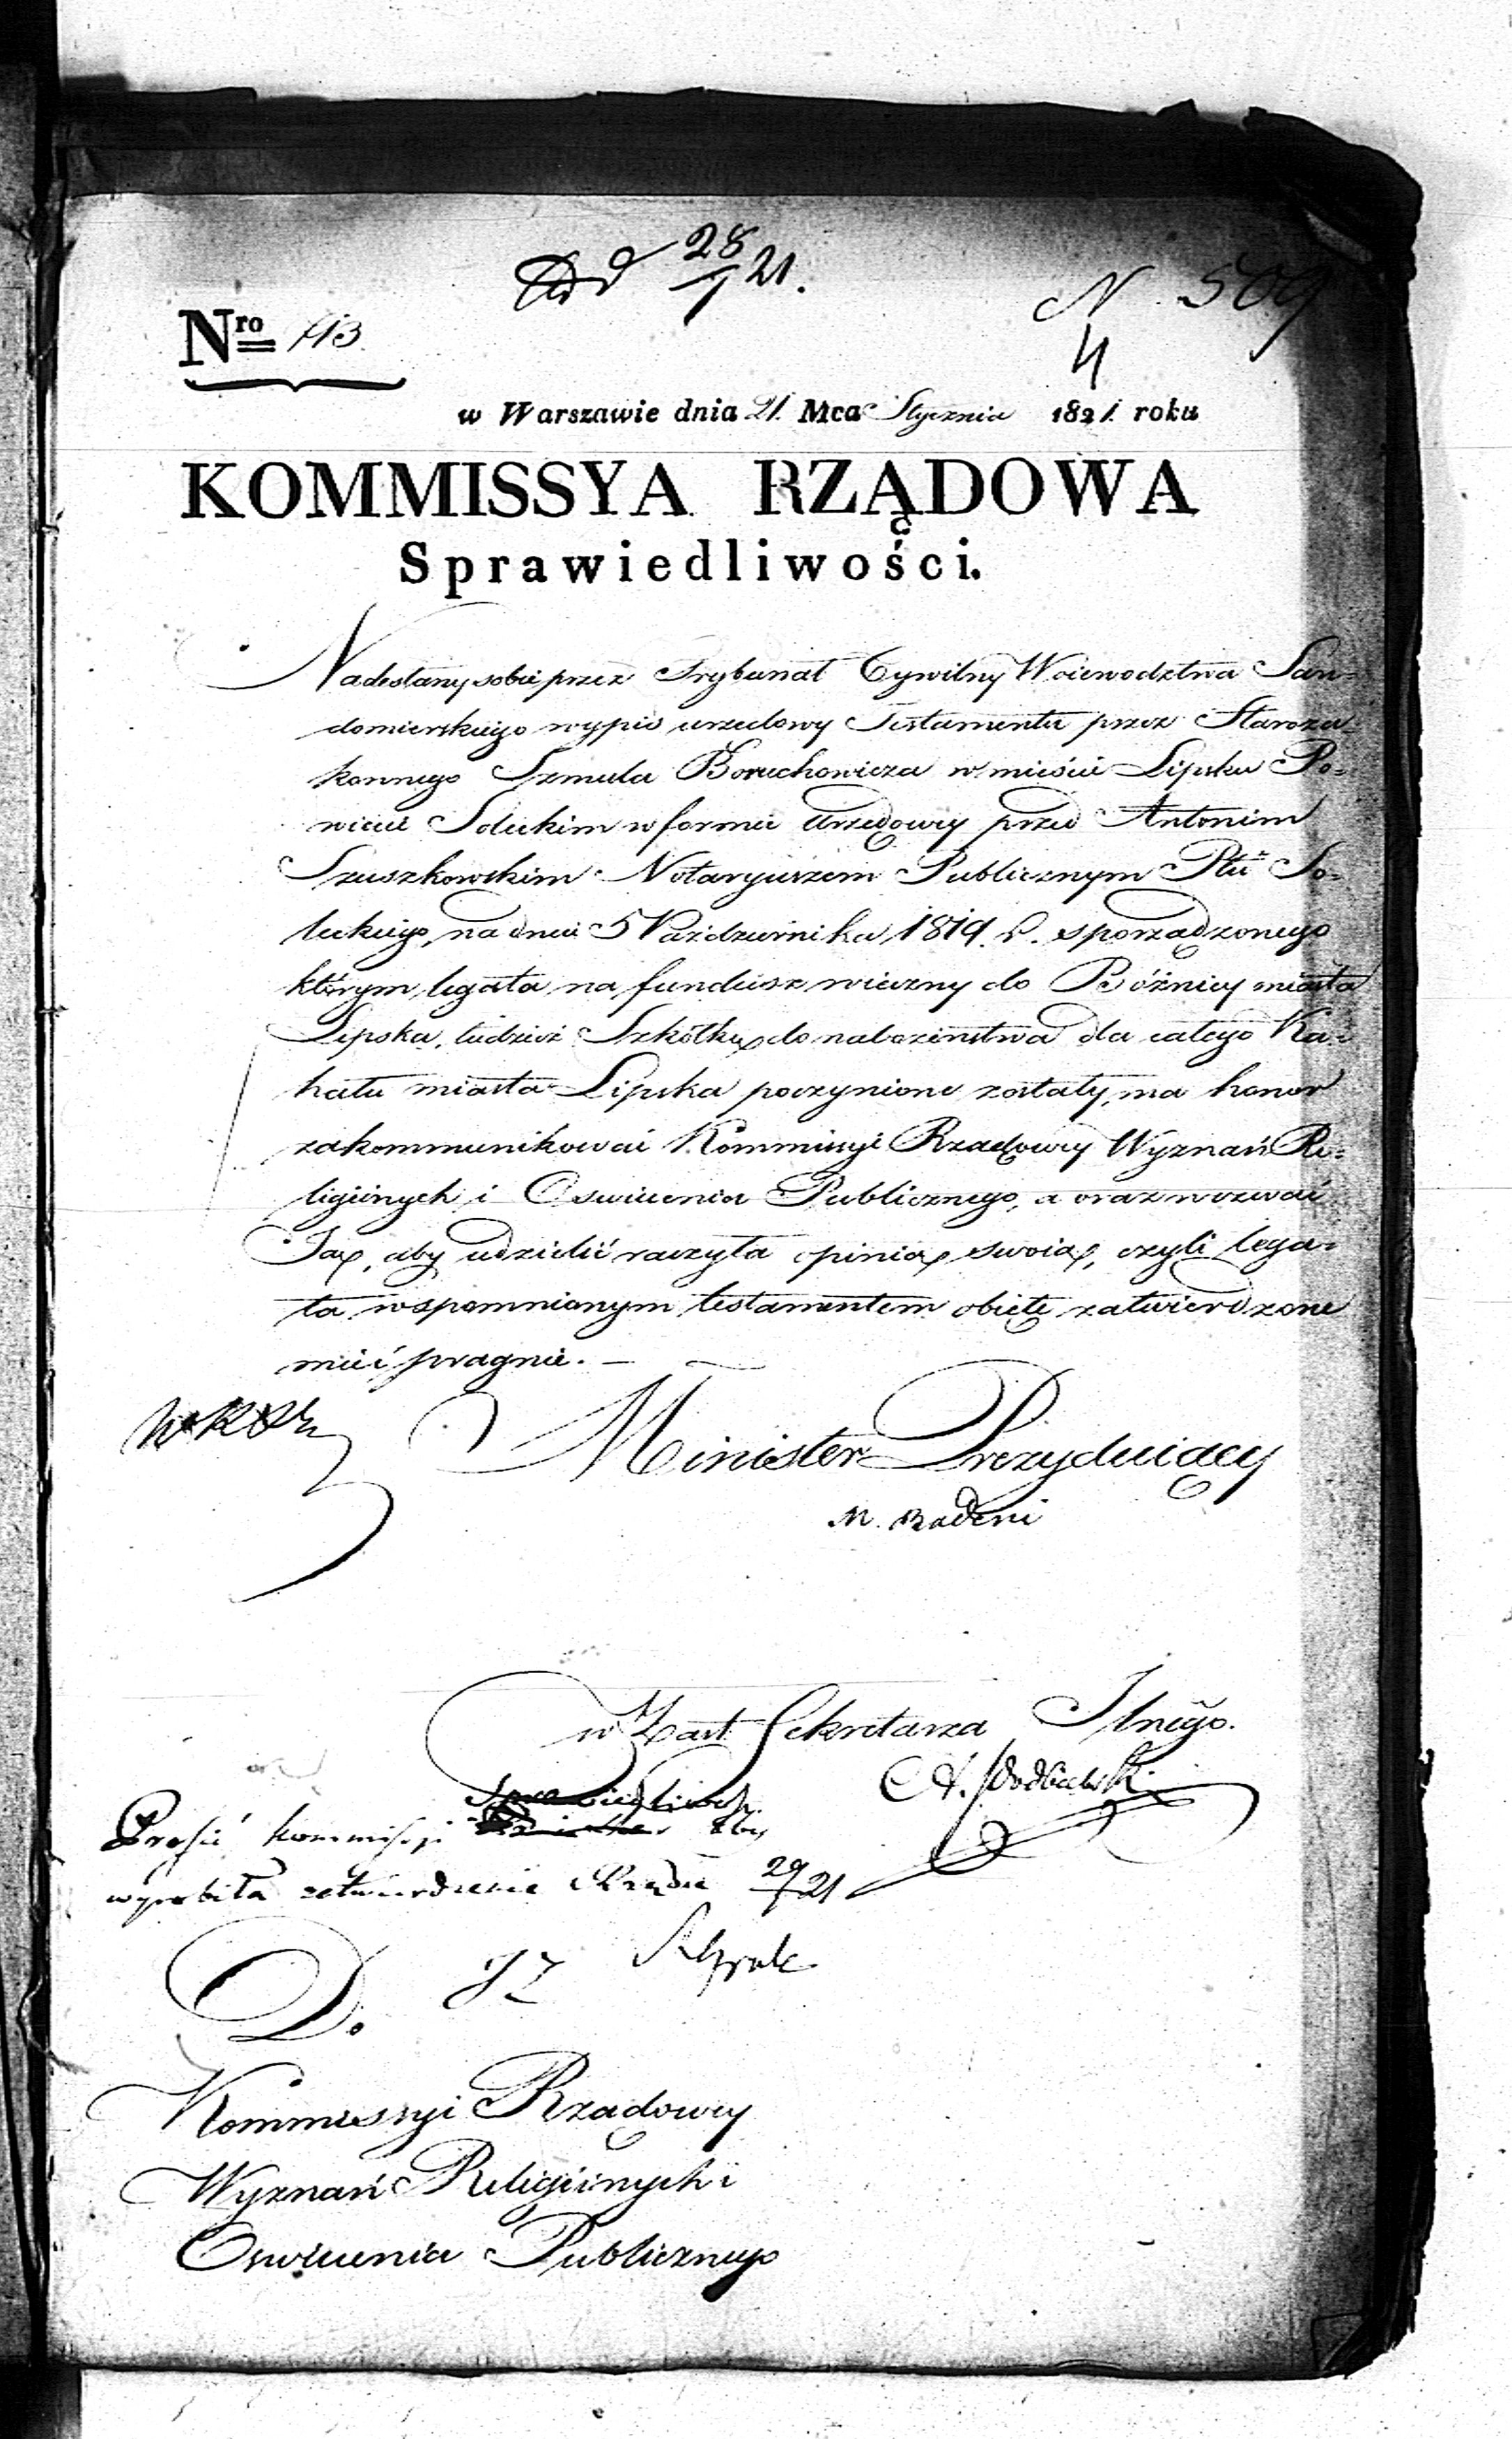 28/1 21.
N 509
4
Nro 113.
w Warszawie dnia 21. Mca Stycznia 1821. roku
KOMMISSYA RZĄDOWA
Sprawiedliwości.
Nadesłany sobie przez Trybunał Cywilny Woiewodztwa San=
domierskiego wypis urzędowy Testamentu przez Staroza=
konnego Szmula Boruchowicza w mieście Lipsku Po=
wiecie Soleckim w formie Urzędowey przed Antonim
Szuszkowskim Notaryuszem Publicznym Ptu So=
leckiego, na dniu 5 Października 1819. r. sporządzonego
którym legata na fundusz wieczny do Bóżnicy miasta
Lipska, tudzież Szkółkę do nabożeństwa dla całego Ka=
hału miasta Lipska poczynione zostały, ma honor
zakommunikować Kommissyi Rządowey Wyznań Re=
ligiinych i Oswiecenia Publicznego, a oraz wezwać
Ią, aby udzielić raczyła opinią swoią, czyli lega=
ta wspomnianym testamentem obięte zatwierdzone
mieć pragnie. —
Minister Prezyduiący
M. Badeni
w Zast Sekretarza Jlnego.
Prosić kommissyi Sprawiedliwości aby
wyrobiła zatwierdzenie Rządu 29/1 21
D.
Kommissyi Rządowey
Wyznań Religiinych i
Oswiecenia Publicznego